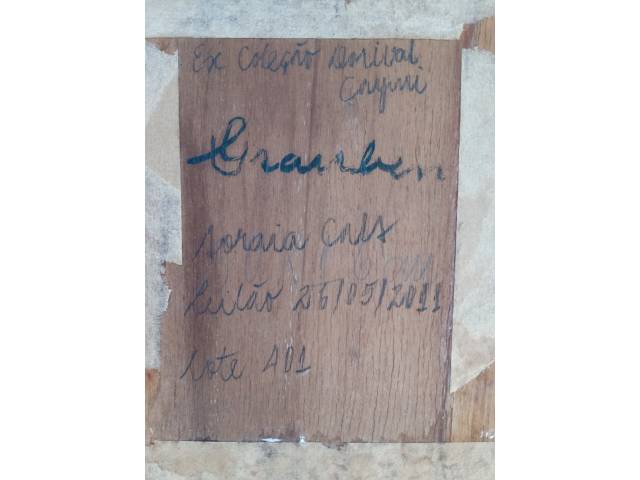 Ex Coleção Dorival
Caymi
Grauben
Soraia Cals
Leilão 26/05/2011
Lote 401